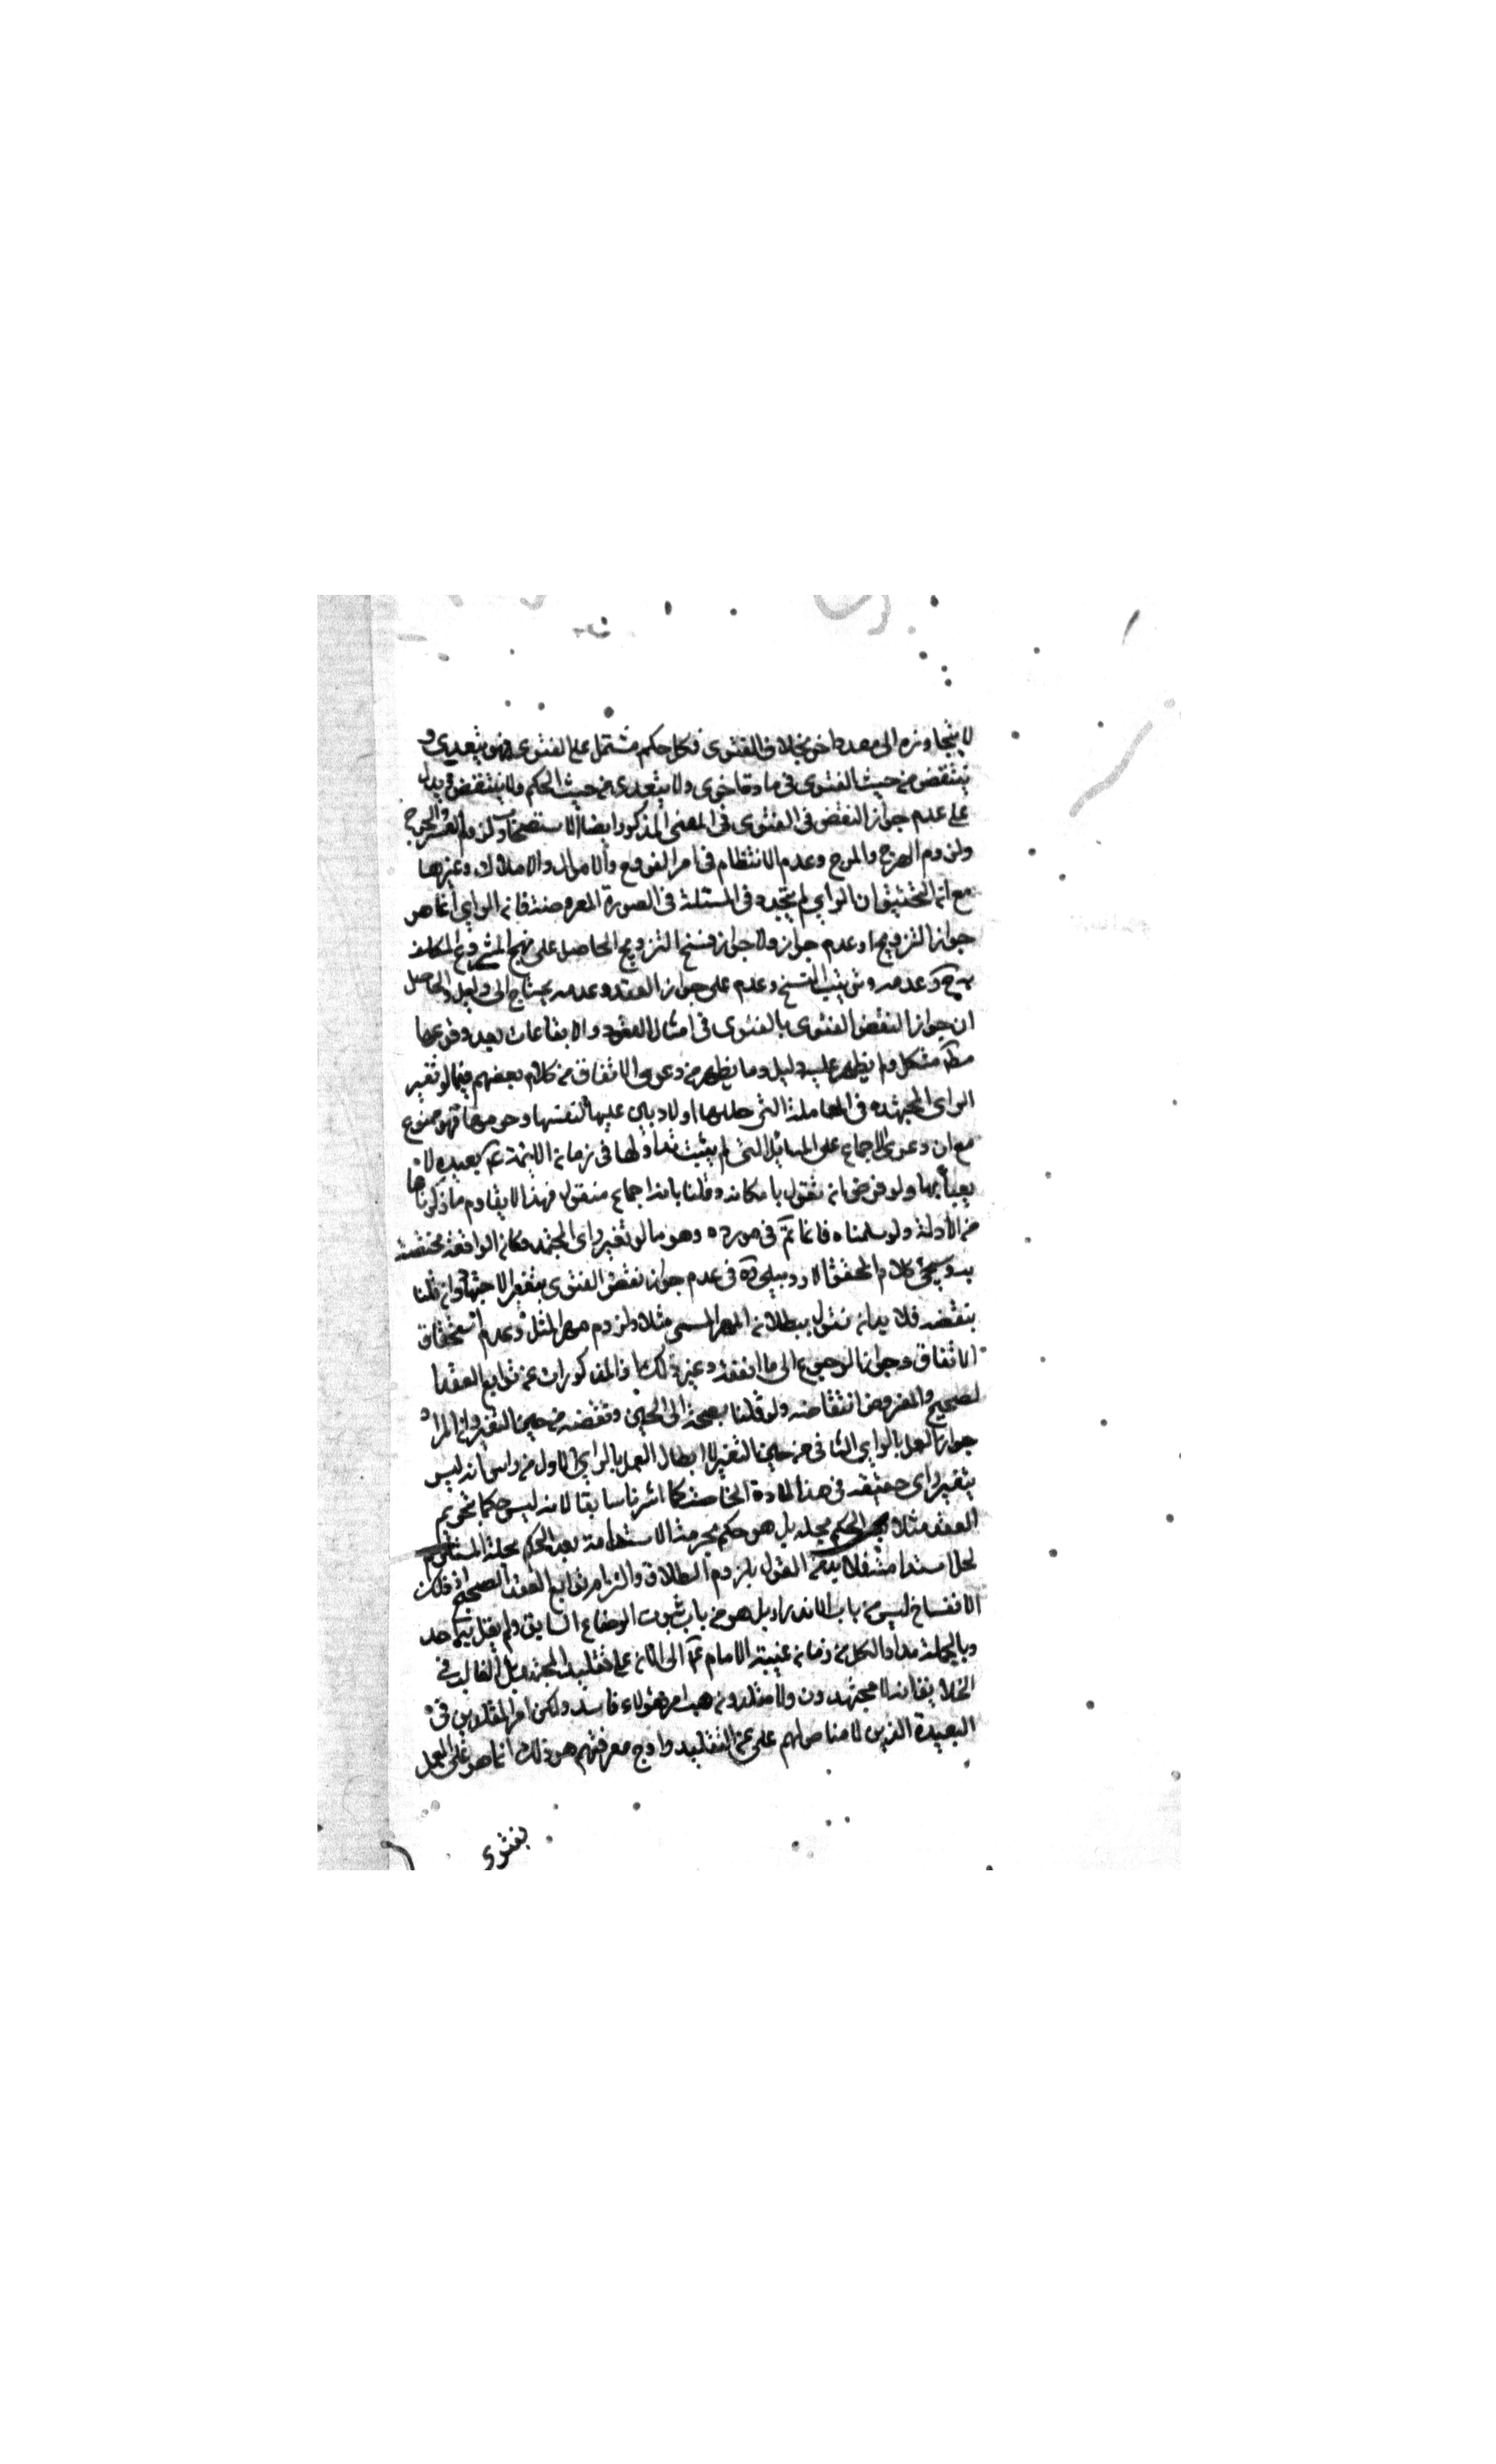 لا يتجاوزه الى مورد اخر بخلاف الفتوى فكل حكم مشتمل على الفتوى فهو يتعدى و
ينتقض من حيث الفتوى في مادة اخرى ولا يتعدى من حيث الحكم ولا ينتقض ويدل
على عدم جواز النقض في الفتوى في المعنى المذكور ايضا الاستصحاب ولزوم العسر والحرج
ولزوم الهرج والمرج وعدم الانتظام في امر الفروج والاموال والاملاك وغيرها
مع ان التحقيق ان الراي لم يتجدد في المسئلة في الصورة المعروضة فان الراي انما هو
جواز التزويج او عدم جوازه لا جواز فسخ التزويج الحاصل على نهج المشروع المكلف
به ح وعدمه وترتيب الفسخ وعدمه على جواز العقد وعدمه يحتاج الى دليل والحاصل
ان جواز النقض الفتوى بالفتوى في امثال العقود والايقاعات بعد وقوعها
مط مشكل ولم يظهر عليه دليل وما يظهر من دعوى الاتفاق من كلام بعضهم فيما لو تغير
الراى المجتهد في المعاملة التي حللها اولا وبنى عليها لنفسها وحرمها فهو ممنوع
مع ان دعوى الاجماع على المسائل التي لم يثبت تداولها في زمان الائمة ع بعيدة لا
يعبأ بها ولو فرض ان نقول بامكانه وقلنا بانه اجماع منقول فهذا لا يقاوم ما ذكرناها
من الادلة ولو سلمناه فانما يتم في مورده وهو ما لو تغير راى المجتهد وكان الواقعة مختصة
به وسيجئ كلام المحقق الاردبيلى ره في عدم جواز نقض الفتوى بتغير الاجتهاد وان قلنا
بنقضه فلا بد ان نقول ببطلان المهر المسمى مثلا ولزوم مهر المثل وعدم استحقاق
الانفاق وجواز الرجوع الى ما انفقه وغير ذلك اذ المذكورات من توابع العقد ا
لصحيح والمفروض انتقاضه ولو قلنا بصحته الى الحين ونقضه من حين التغير وان المراد
جواز العمل بالراي الثاني من حين التغير لا ابطال العمل بالراي الاول من راس انه ليس
بتغير راى حقيقة في هذا المادة الخاصة كما اشرنا سابقا لانه ليس حكما بتحريم
العقد مثلا بعد الحكم بحله بل هو حكم بحرمة الاستدامة بعد الحكم بحلية المستلزم
لحل استدامته فلا يتم القول بلزوم الطلاق والتزام توابع العقد الصحيح اذ ذلك
الانفساخ ليس من باب الارتداد بل هو من باب ثبوت الرضاع السابق ولم يقل به احد
وبالجملة مدار الكل من زمان غيبة الامام ع الى الان على تقليد المجتهد بل الغالب في
الخلايق انه لا مجتهدون ولا مقلدون هب امر هؤلاء فاسد ولكن امر المقلدين في
البعيدة الذين لا مناص لهم على عن التقليد واوج معرفتهم هو ذلك انما هو على العمل
بفتوى